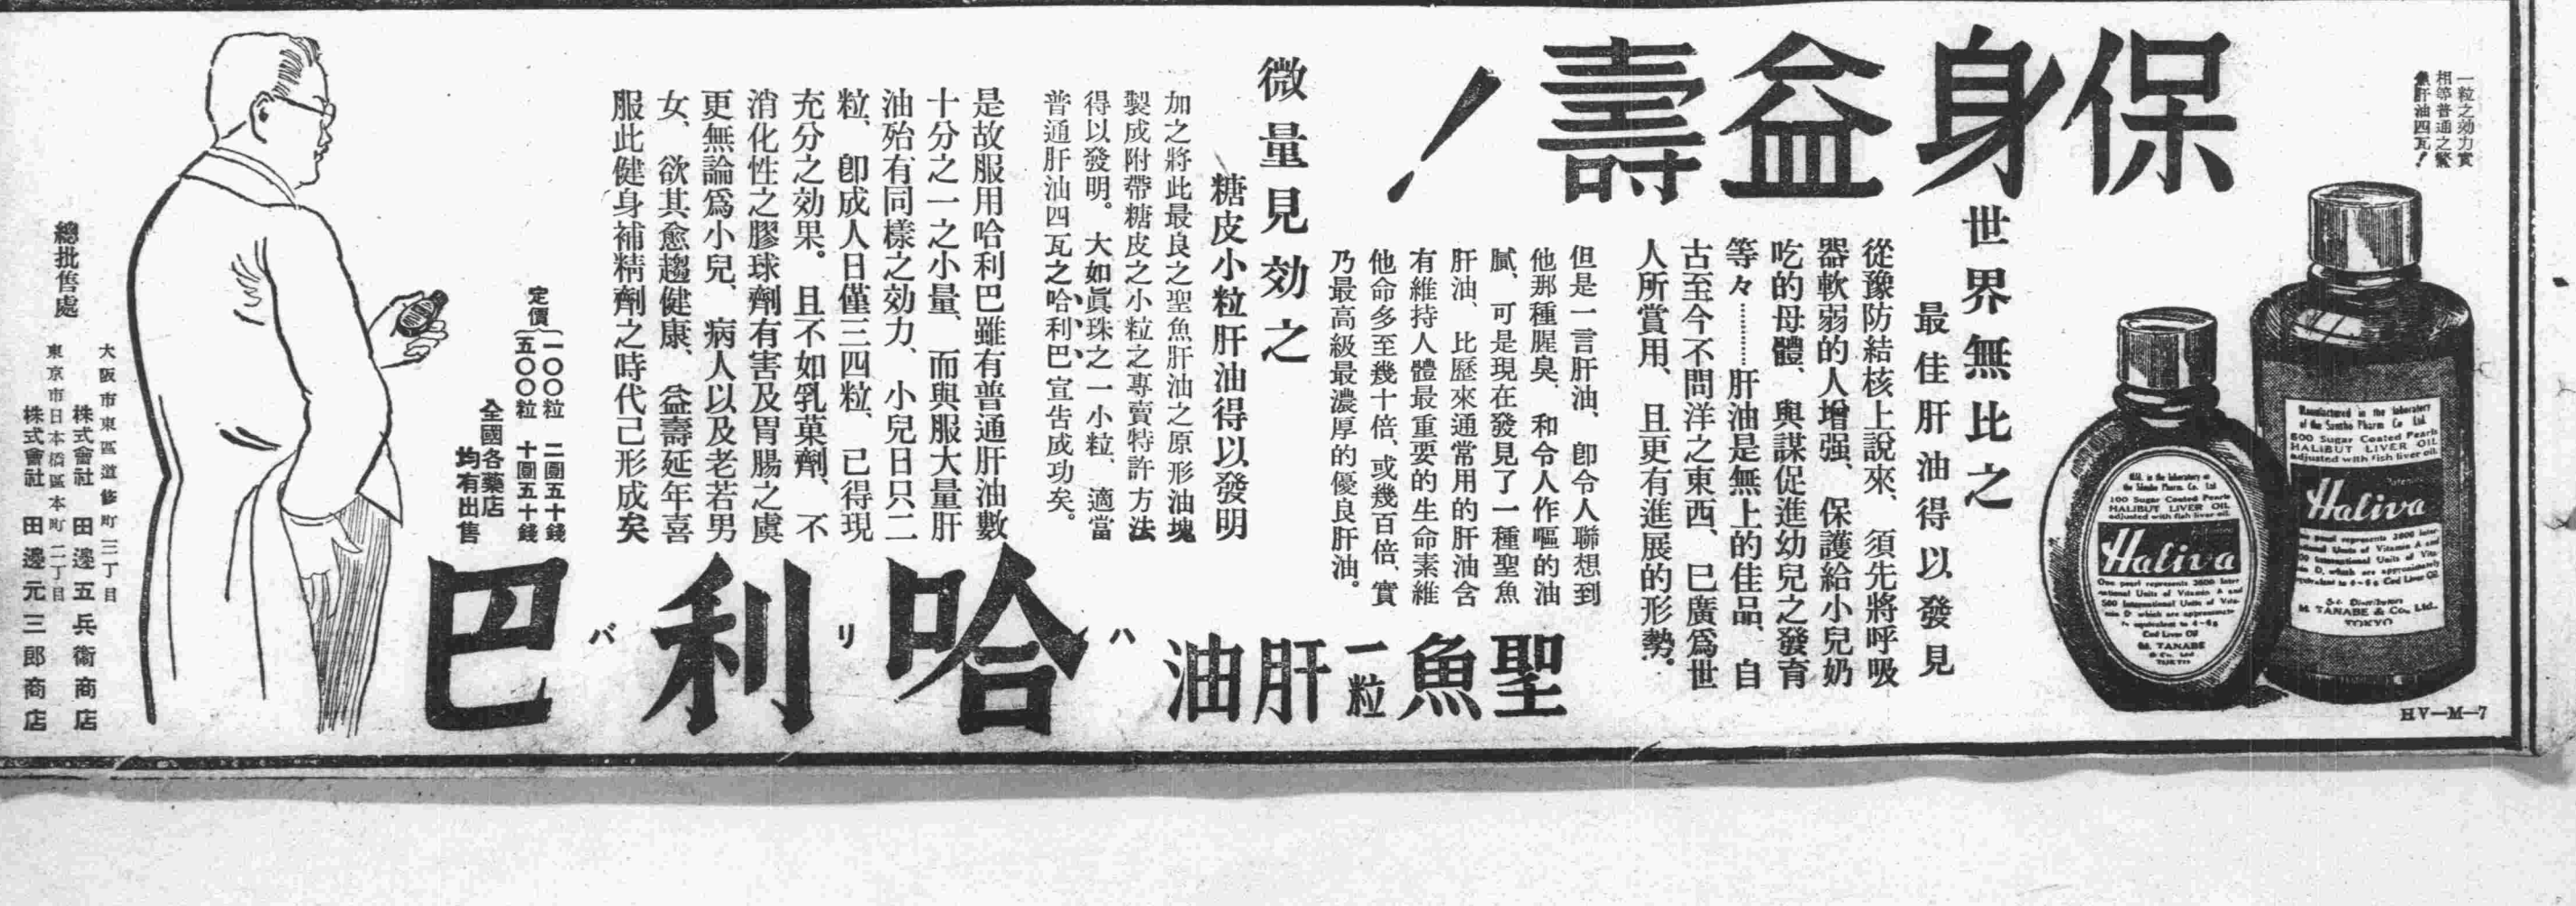 一粒之効力實
相等普通之鱉
魚肝油四瓦！
保身益壽！
世界無比之
最佳肝油得以發見
從豫防結核上說來、須先將呼吸
器軟弱的人增强、保護給小兒奶
吃的母體、與謀促進幼兒之發育
等々…………肝油是無上的佳品、自
古至今不問洋之東西、已廣爲世
人所賞用、且更有進展的形勢。
但是一言肝油、卽令人聯想到
他那種腥臭、和令人作嘔的油
膩、可是現在發見了一種聖魚
肝油、比歷來通常用的肝油含
有維持人體最重要的生命素維
他命多至幾十倍、或幾百倍、實
乃最高級最濃厚的優良肝油。
微量見効之
糖皮小粒肝油得以發明
加之將此最良之聖魚肝油之原形油塊
製成附帶糖皮之小粒之專賣特許方法
得以發明。大如眞珠之一小粒、適當
普通肝油四瓦之哈利巴、宣告成功矣。
是故服用哈利巴雖有普通肝油數
十分之一之小量、而與服大量肝
油殆有同樣之効力、小兒日只二
粒、卽成人日僅三四粒、已得現
充分之効果。且不如乳菓劑、不
消化性之膠球劑有害及胃腸之虞
更無論爲小兒、病人以及老若男
女、欲其愈趨健康、益壽延年喜
服此健身補精劑之時代己形成矣
聖魚一粒肝油
哈利巴
ハリバ
定價
一〇〇粒 二圓五十錢
五〇〇粒 十圓五十錢
全國各藥店
均有出售
總批售處
大阪市東區道修町三丁目
株式會社 田邊五兵衞商店
東京市日本橋區本町二丁目
株式會社 田邊元三郎商店
Manufactured in the laboratory
of the Santho Pharm Co Ltd.
500 Sugar Coated Pearls
HALIBUT LIVER OIL
adjusted with fish liver oil.
Haliva
One pearl represents 3800 Inter
national Units of Vitamin A and
500 International Units of Vita
min D, which are approximately
equivalent to 4-6g Cod Liver Oil.
M. TANABE & Co., Ltd.
TOKYO
100 Sugar Coated Pearls
HALIBUT LIVER OIL
adjusted with fish liver oil.
Haliva
One pearl represents 3800 Inter
national Units of Vitamin A and
500 International Units of Vita-
min D which are approximate
ly equivalent to 4-6g
Cod Liver Oil
M. TANABE
& Co., Ltd
TOKYO
HV—M—7